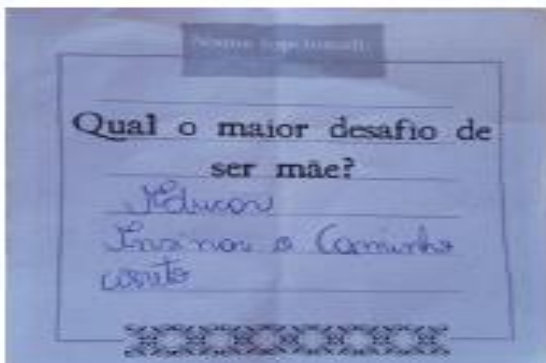 Nome (opcional):
Qual o maior desafio de
ser mãe?
Educar
Ensinar o Caminho
certo